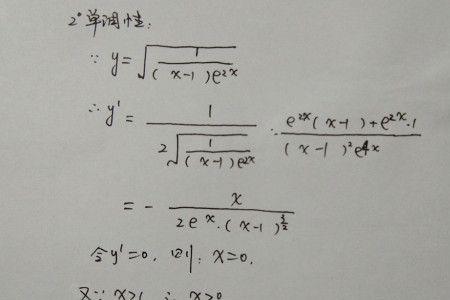 2° 单调性:
∵ y = √(1/((x-1)e^{2x}))
∴ y' = 1/(2√(1/((x-1)e^{2x}))) · (e^{2x}(x-1)+e^{2x}·1)/((x-1)²e^{4x})
= - x/(2e^{x}·(x-1)^{3/2})
令y'=0, 则: x=0,
又∵ x>1 ∴ x>0